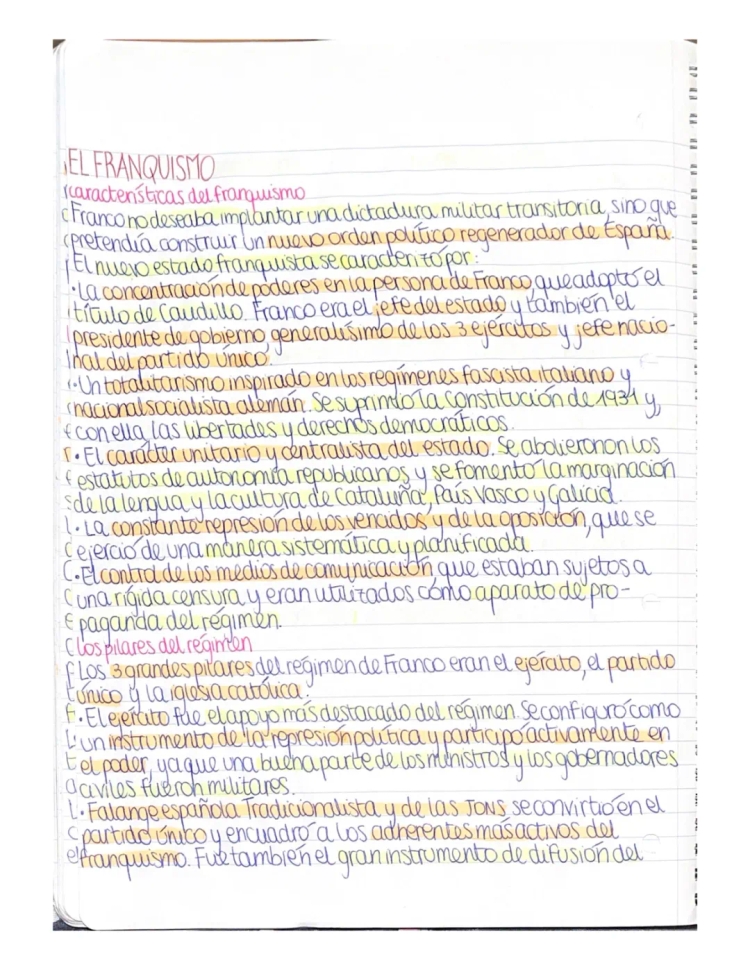 EL FRANQUISMO
características del franquismo
Franco no deseaba implantar una dictadura militar transitoria, sino que
pretendía construir un nuevo orden político regenerador de España.
El nuevo estado franquista se caracterizó por:
·La concentración de poderes en la persona de Franco, que adoptó el
título de Caudillo. Franco era el jefe del estado y también el
presidente de gobierno, generalísimo de los 3 ejércitos y jefe nacio-
nal del partido único.
·Un totalitarismo inspirado en los regímenes fascista italiano y
nacionalsocialista alemán. Se suprimió la constitución de 1931 y,
con ella, las libertades y derechos democráticos.
·El carácter unitario y centralista del estado. Se abolieron on los
estatutos de autonomía republicanos y se fomentó la marginación
de la lengua y la cultura de Cataluña, País Vasco y Galicia.
·La constante represión de los vencidos y de la oposición, que se
ejerció de una manera sistemática y planificada.
·El control de los medios de comunicación que estaban sujetos a
una rígida censura y eran utilizados cómo aparato de pro-
paganda del régimen.
Los pilares del régimen
Los 3 grandes pilares del régimen de Franco eran el ejército, el partido
único y la iglesia católica:
·El ejército fue el apoyo más destacado del régimen. Se configuró como
un instrumento de la represión política y participó activamente en
el poder, ya que una buena parte de los ministros y los gobernadores
civiles fueron militares.
·Falange española Tradicionalista y de las JONS se convirtió en el
partido único y encuadró a los adherentes más activos del
franquismo. Fue también el gran instrumento de difusión del